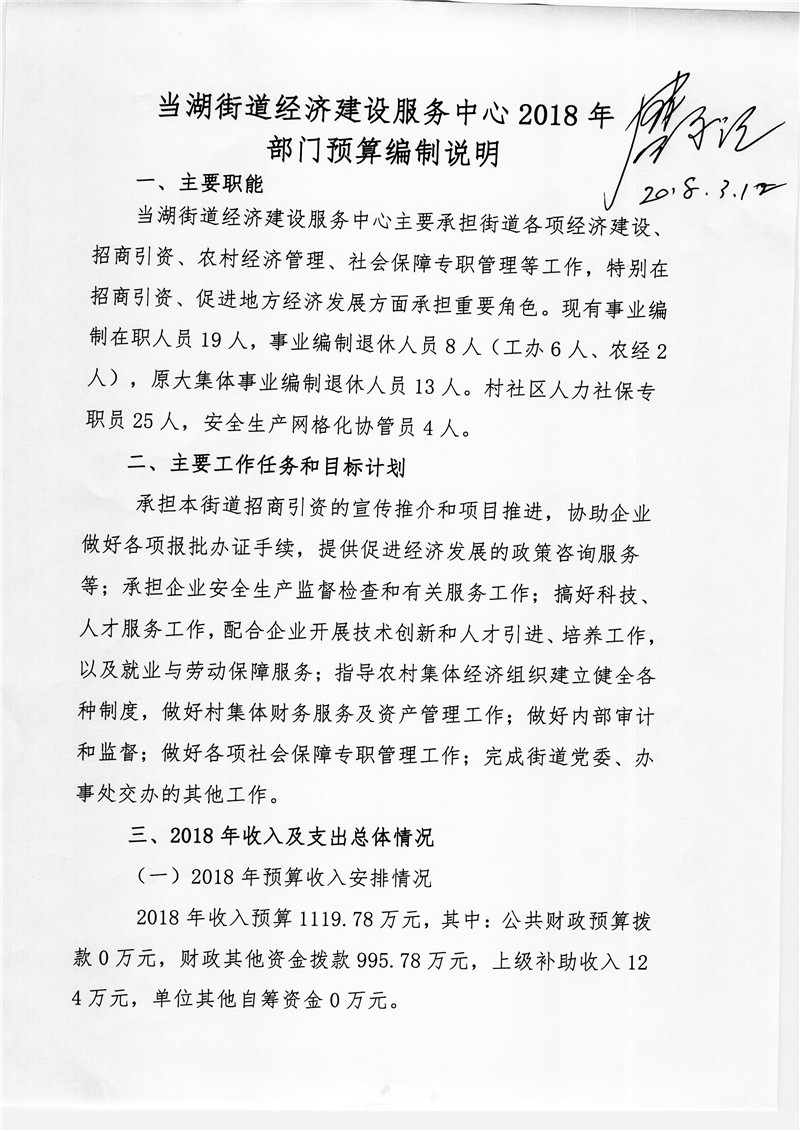 当湖街道经济建设服务中心2018年
部门预算编制说明
2018.3.12
一、主要职能
当湖街道经济建设服务中心主要承担街道各项经济建设、
招商引资、农村经济管理、社会保障专职管理等工作，特别在
招商引资、促进地方经济发展方面承担重要角色。现有事业编
制在职人员19人，事业编制退休人员8人（工办6人、农经2
人），原大集体事业编制退休人员13人。村社区人力社保专
职员25人，安全生产网格化协管员4人。
二、主要工作任务和目标计划
承担本街道招商引资的宣传推介和项目推进，协助企业
做好各项报批办证手续，提供促进经济发展的政策咨询服务
等；承担企业安全生产监督检查和有关服务工作；搞好科技、
人才服务工作，配合企业开展技术创新和人才引进、培养工作，
以及就业与劳动保障服务；指导农村集体经济组织建立健全各
种制度，做好村集体财务服务及资产管理工作；做好内部审计
和监督；做好各项社会保障专职管理工作；完成街道党委、办
事处交办的其他工作。
三、2018年收入及支出总体情况
（一）2018年预算收入安排情况
2018年收入预算1119.78万元，其中：公共财政预算拨
款0万元，财政其他资金拨款995.78万元，上级补助收入12
4万元，单位其他自筹资金0万元。